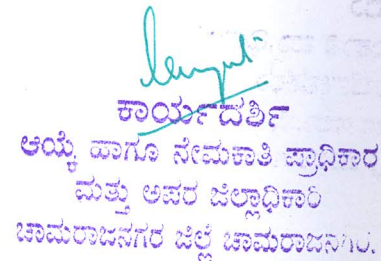 ಕಾರ್ಯದರ್ಶಿ
ಆಯ್ಕೆ ಹಾಗೂ ನೇಮಕಾತಿ ಪ್ರಾಧಿಕಾರ
ಮತ್ತು ಅಪರ ಜಿಲ್ಲಾಧಿಕಾರಿ
ಚಾಮರಾಜನಗರ ಜಿಲ್ಲೆ ಚಾಮರಾಜನಗರ.